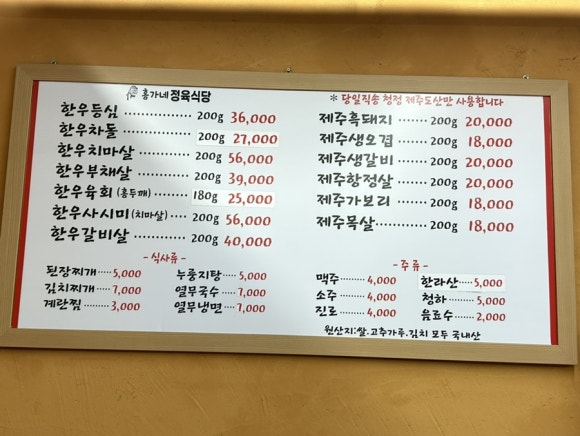 홍가네 정육식당
한우등심 ··············· 200g 36,000
한우차돌 ··············· 200g 27,000
한우치마살 ············ 200g 56,000
한우부채살 ············ 200g 39,000
한우육회 (홍두깨) ······ 180g 25,000
한우사시미 (치마살) ···· 200g 56,000
한우갈비살 ············ 200g 40,000
※ 당일직송 청정 제주도산만 사용합니다
제주흑돼지 ······ 200g 20,000
제주생오겹 ······ 200g 18,000
제주생갈비 ······ 200g 20,000
제주항정살 ······ 200g 20,000
제주가보리 ······ 200g 18,000
제주목살 ········ 200g 18,000
- 식사류 -
된장찌개 ···· 5,000
김치찌개 ···· 7,000
계란찜 ······ 3,000
누룽지탕 ···· 5,000
열무국수 ···· 7,000
열무냉면 ···· 7,000
- 주 류 -
맥주 ········ 4,000
소주 ········ 4,000
진로 ········ 4,000
한라산 ···· 5,000
청하 ······ 5,000
음료수 ···· 2,000
원산지:쌀.고추가루.김치 모두 국내산